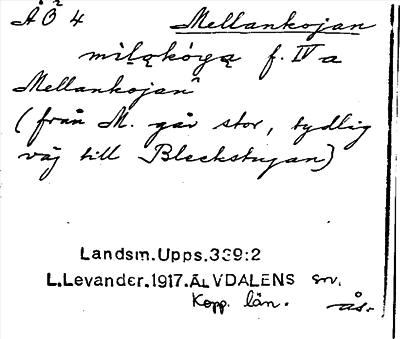 ÅÖ² 4 Mellankojan
mìląkóγą f. IV a
Mellankojan
(från M. går stor, tydlig
väg till Bleckstugan)
Landsm.Upps.339:2
L.Levander.1917.ÄLVDALENS sn.
Kopp. län.
ås.